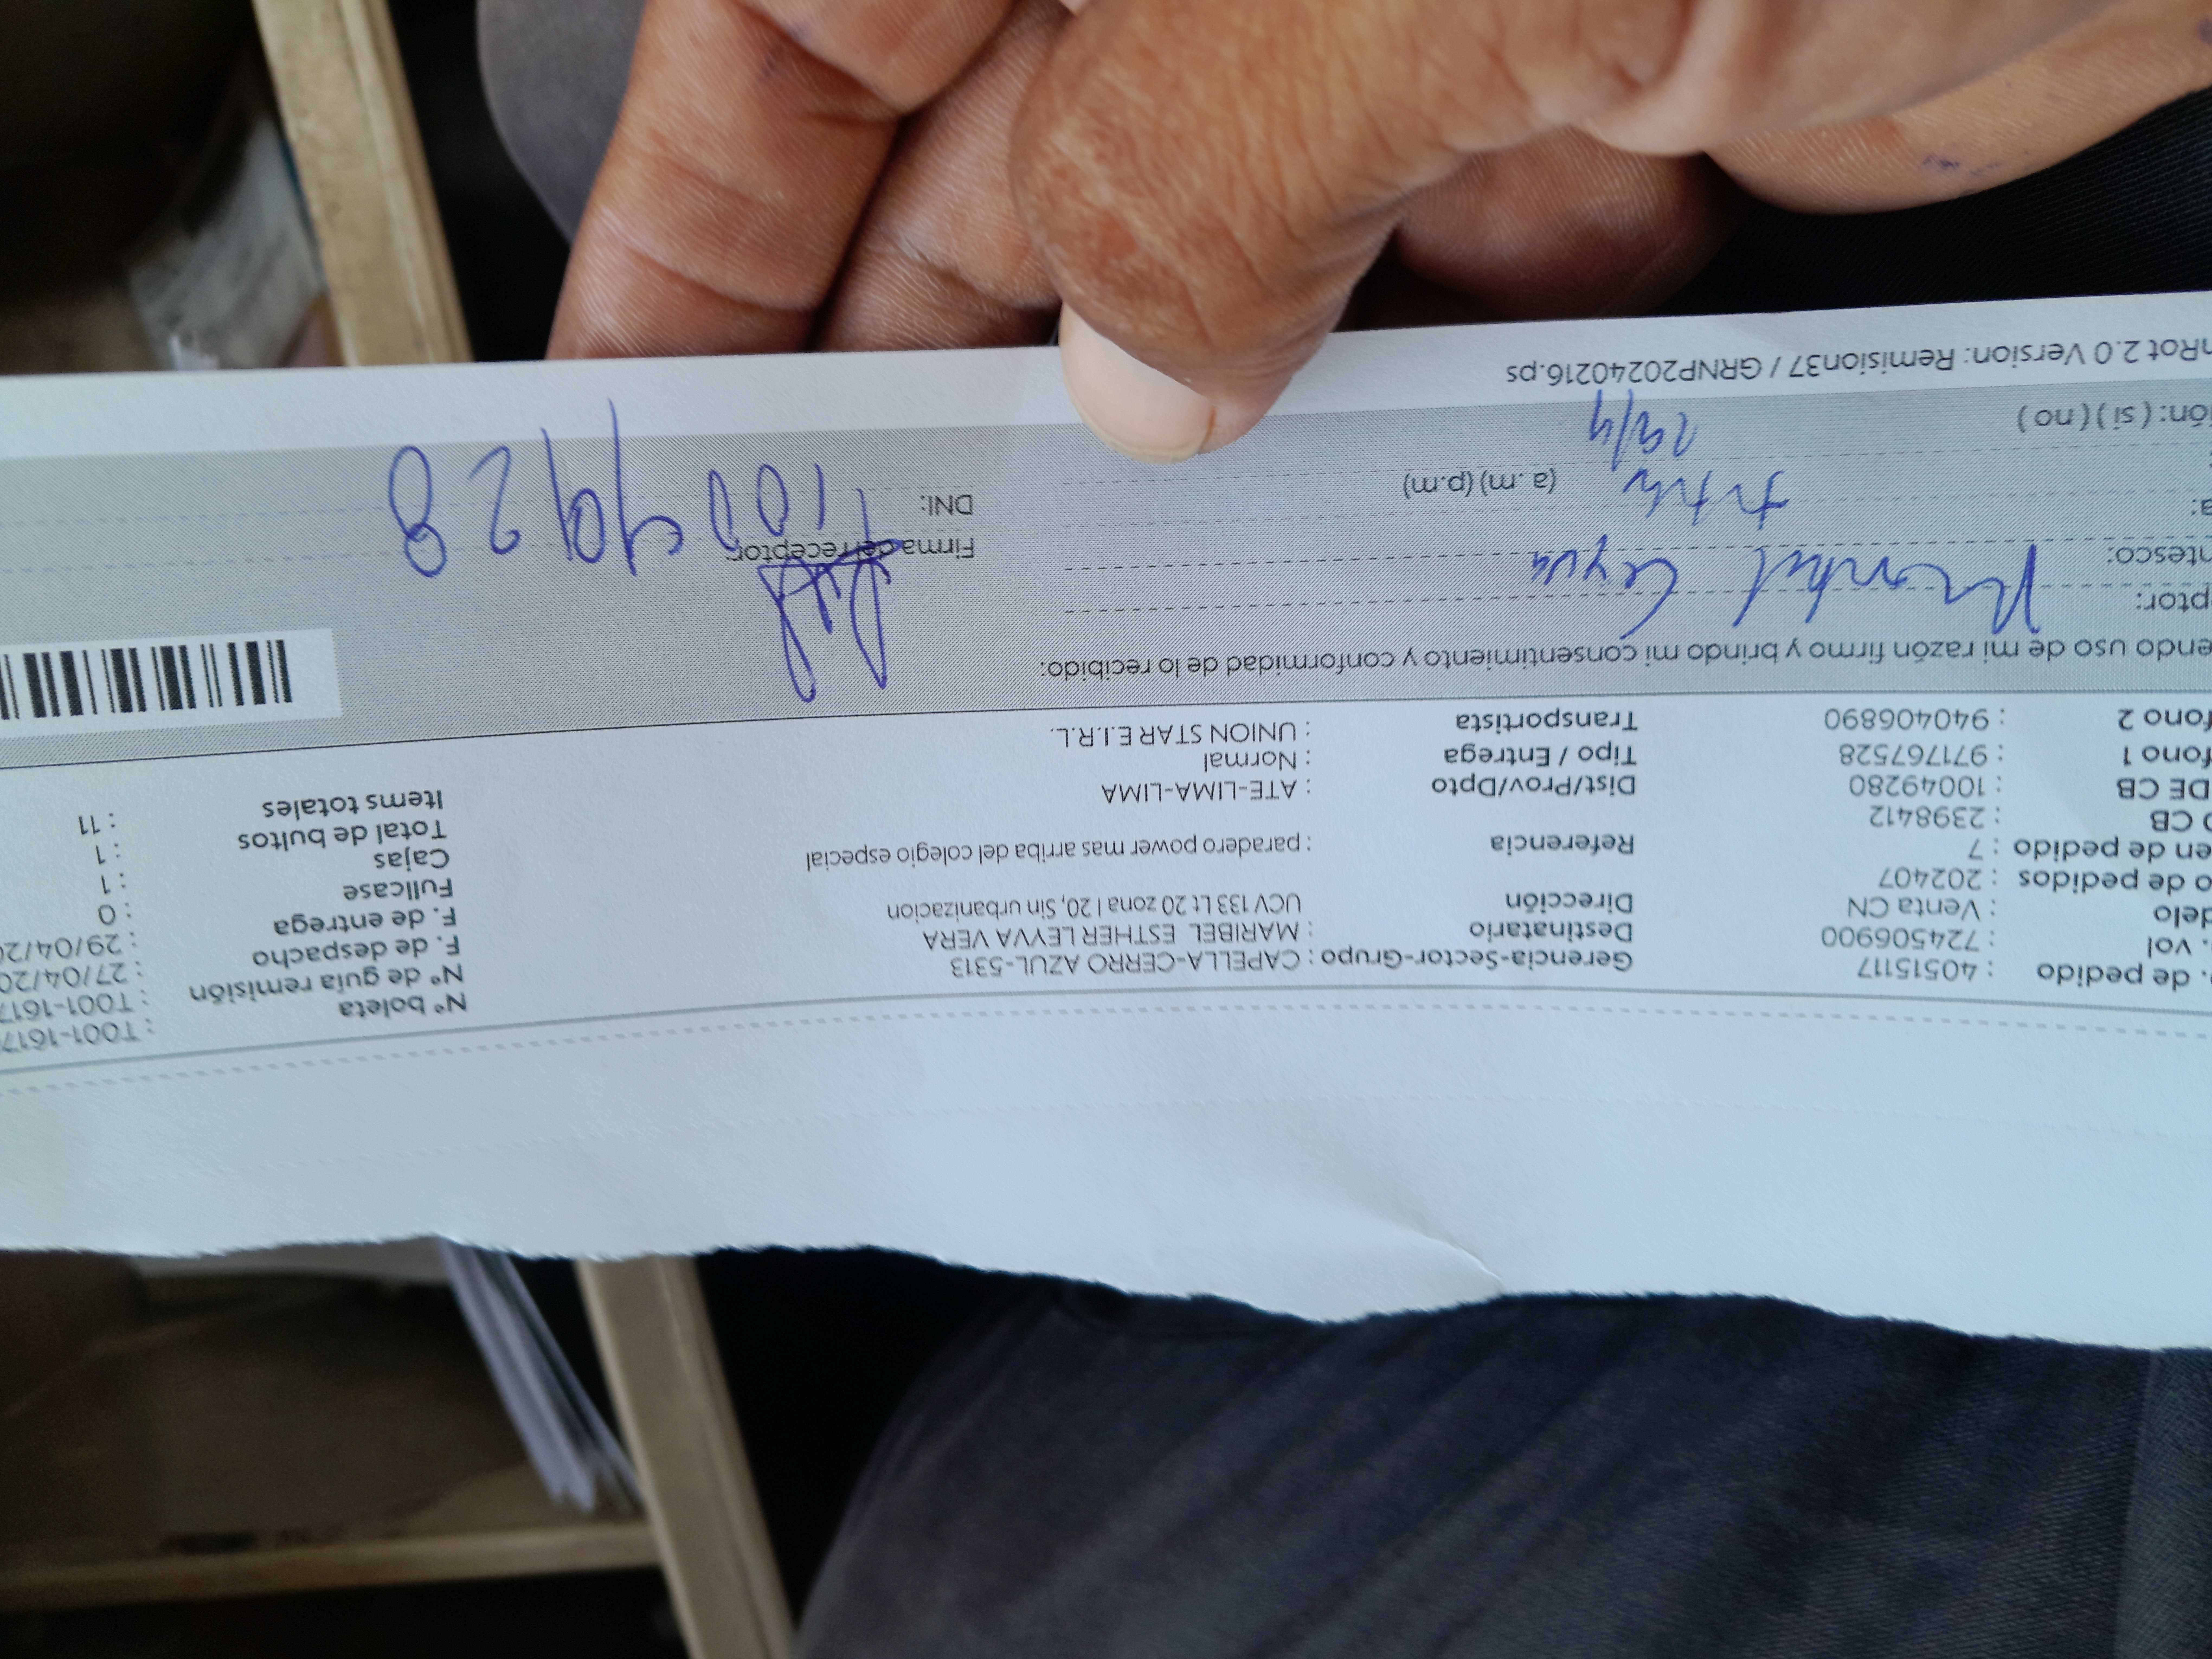 Nº boleta : T001-1617
Nº de guía remisión : T001-1617
F. de despacho : 27/04/20
F. de entrega : 29/04/20
Fullcase : 0
Cajas : 1
Total de bultos : 1
Items totales : 11
. de pedido : 40515117
. vol : 724506900
delo : Venta CN
o de pedidos : 202407
en de pedido : 7
O CB : 2398412
DE CB : 10049280
fono 1 : 971767528
fono 2 : 940406890
Gerencia-Sector-Grupo : CAPELLA-CERRO AZUL-5313
Destinatario : MARIBEL ESTHER LEYVA VERA
Dirección UCV 133 Lt 20 zona I 20, Sin urbanizacion
Referencia : paradero power mas arriba del colegio especial
Dist/Prov/Dpto : ATE-LIMA-LIMA
Tipo / Entrega : Normal
Transportista : UNION STAR E.I.R.L.
endo uso de mi razón firmo y brindo mi consentimiento y conformidad de lo recibido:
ptor: Leyva
ntesco:
a: (a. m) (p.m)
ión: ( si ) ( no ) 29/4
Firma del receptor:
DNI:
nRot 2.0 Version: Remision37 / GRNP20240216.ps